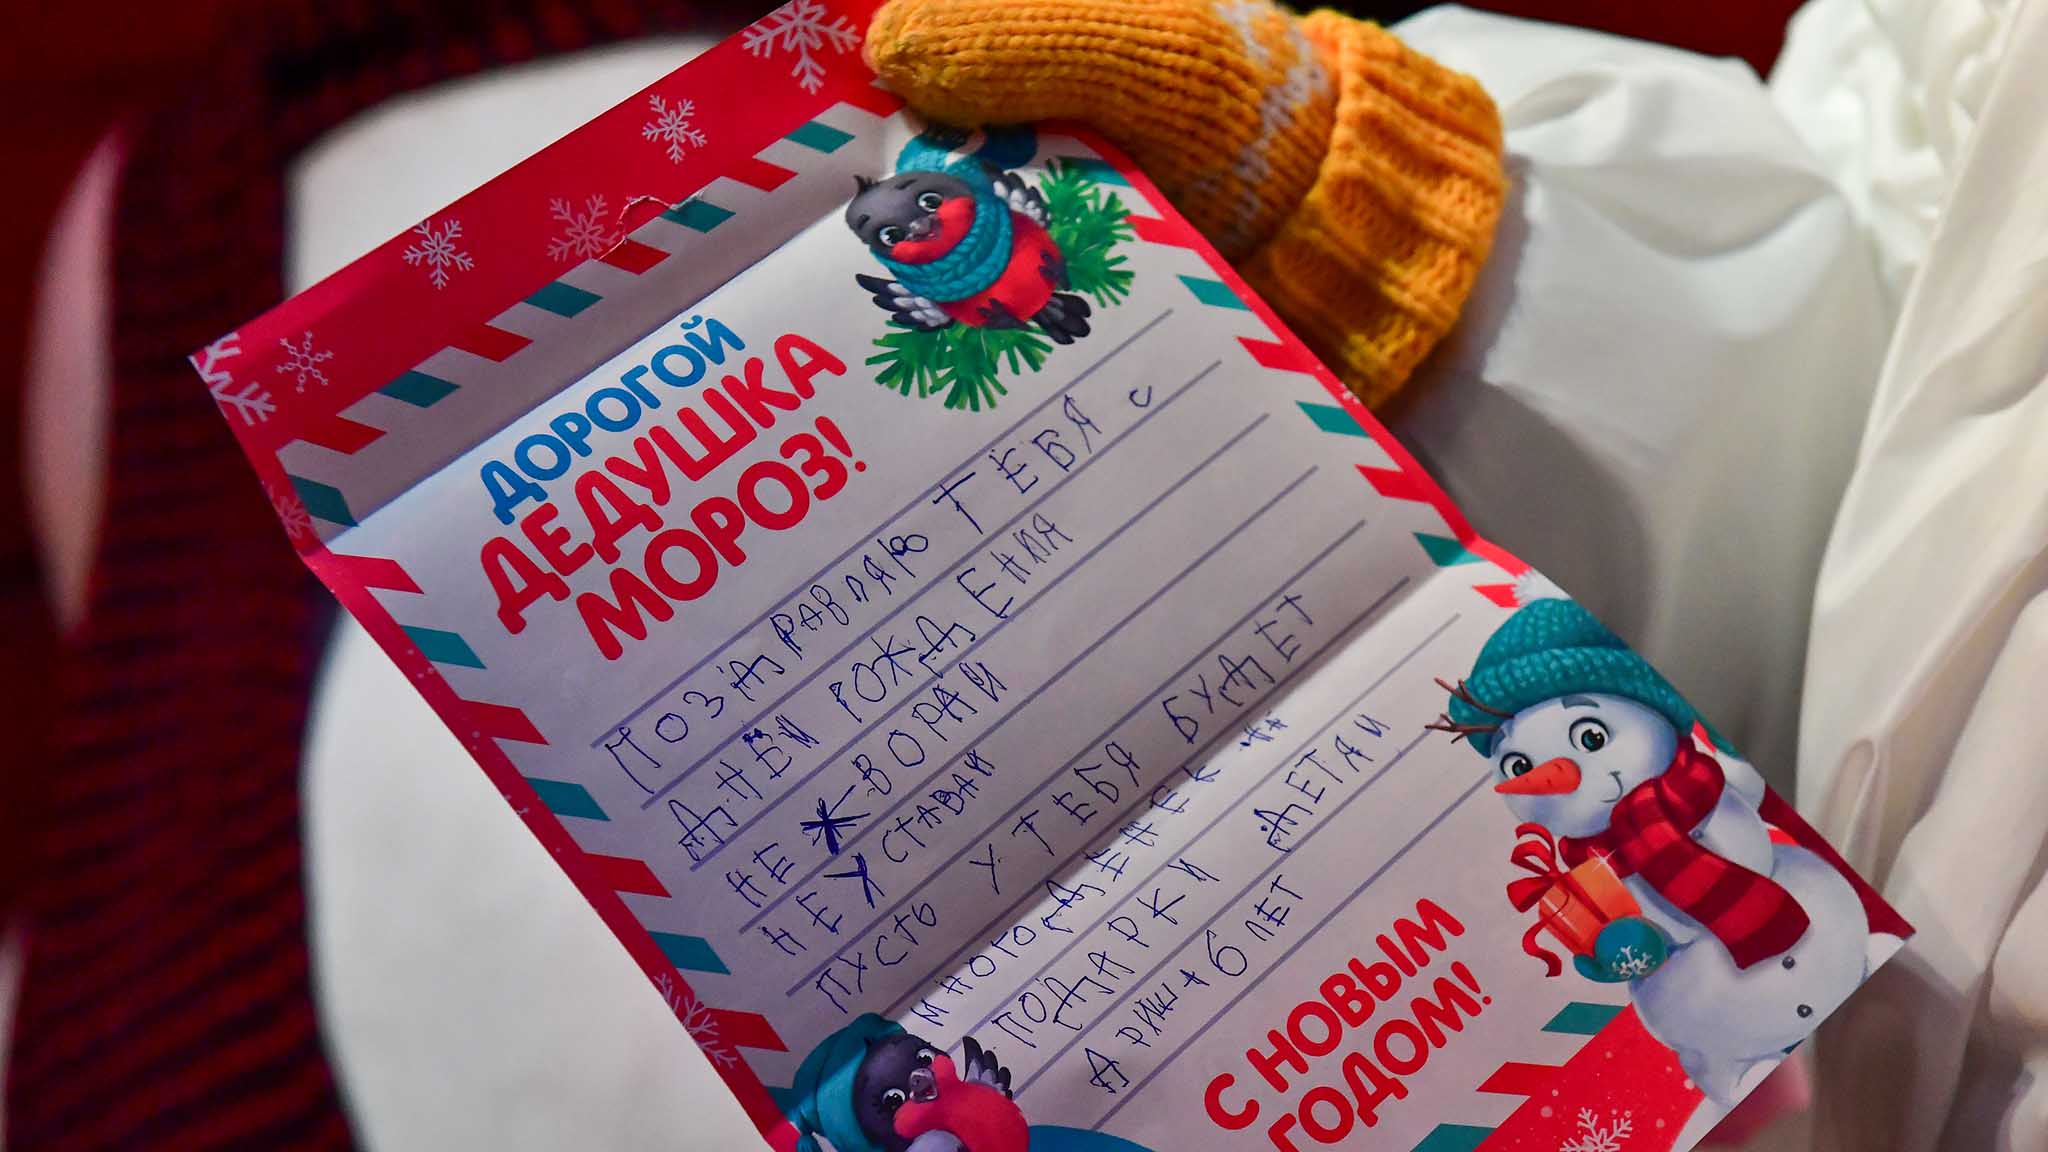 ДОРОГОЙ
ДЕДУШКА
МОРОЗ!
ПОЗДРАВЛЯЮ ТЕБЯ С
ДНЁМ РОЖДЕНИЯ
НЕ ЖВОРАЙ
НЕ УСТАВАЙ
ПУСТЬ У ТЕБЯ БУДЕТ
МНОГО НА
ПОДАРКИ ДЕТЯМ
АРИША 6 ЛЕТ
С НОВЫМ
ГОДОМ!